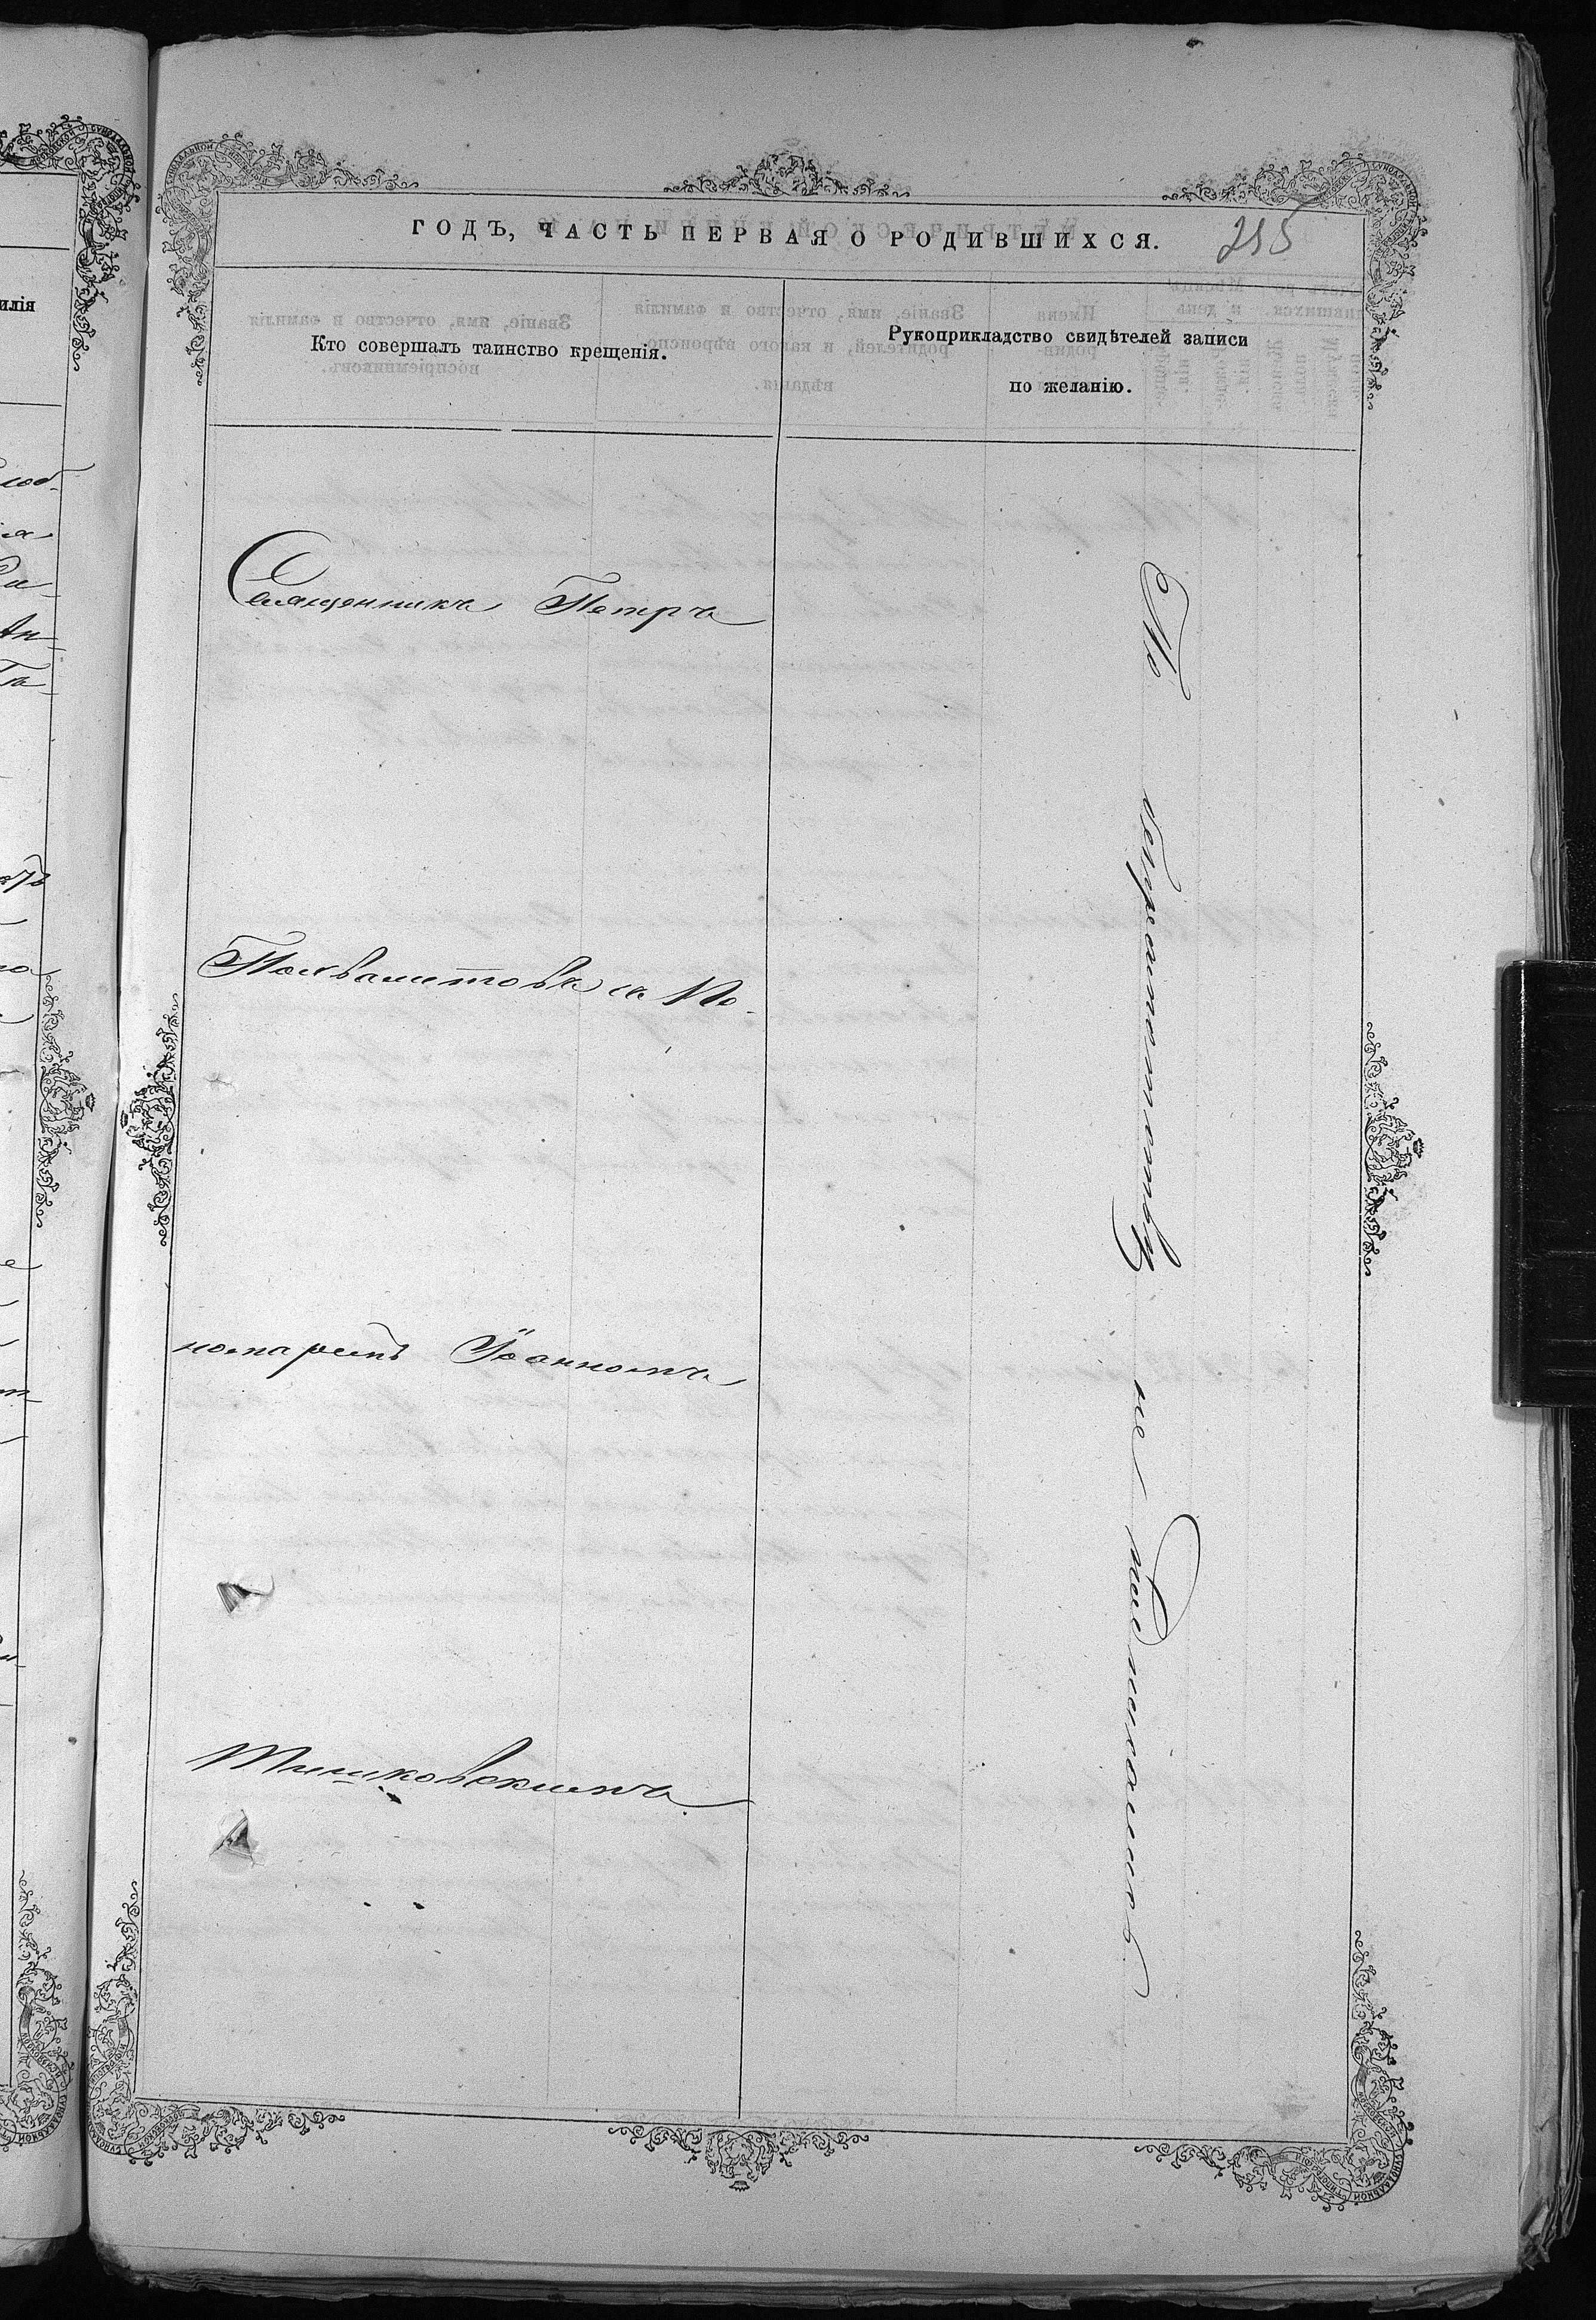 ГОДЪ, ЧАСТЬ ПЕРВАЯ О РОДИВШИХСЯ.
215
Кто совершалъ таинство крещенія.
Рукоприкладство свидѣтелей записи
по желанію.
Священникъ Петръ
съ По-
номаремъ Іоанномъ
Тишковскимъ
По неграмотству не росписались
илія